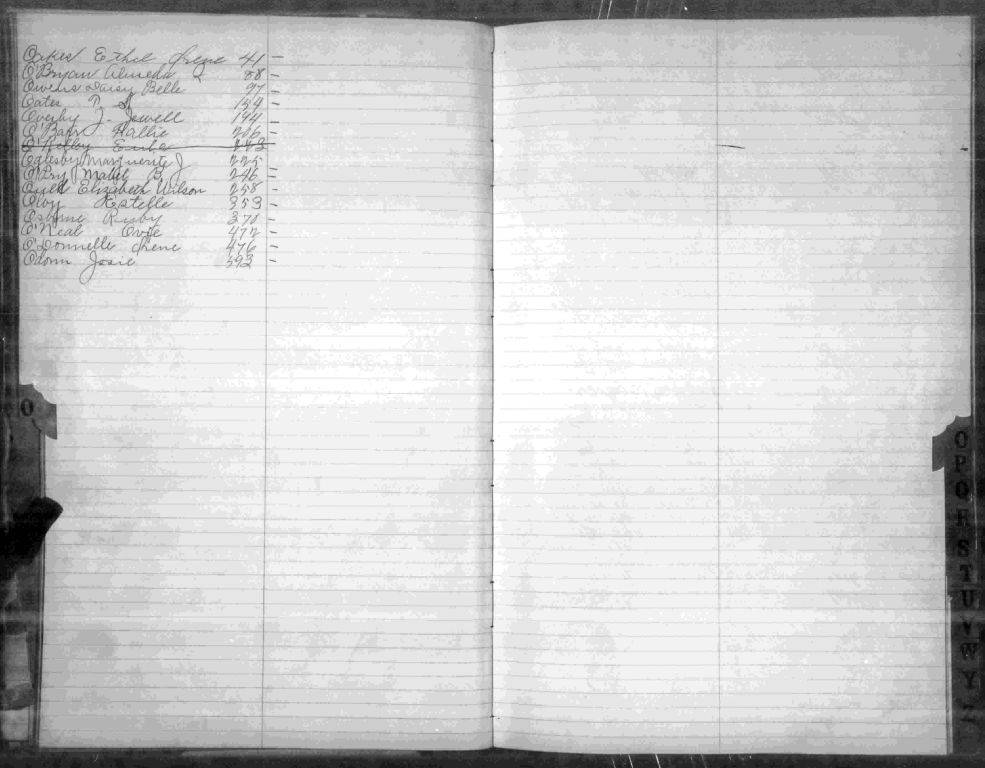 Oakes Ethel Irene 41 —
O'Bryan Almeda 88 —
Owens Daisy Belle 97 —
Oates 134 —
Overby J. Jewell 194 —
O'Barr Hallie 206 —
O'Kelley
Oglesby Marguerite J 225 —
O'Bry Mabel B. J 246 —
Ould Elizabeth Wilson 258 —
Estelle 353 —
Osborne Ruby 370 —
O'Neal 472 —
O'Donnelle Irene 476 —
Odom Josie 592 —
O
O
P
Q
R
S
T
U
V
W
Y